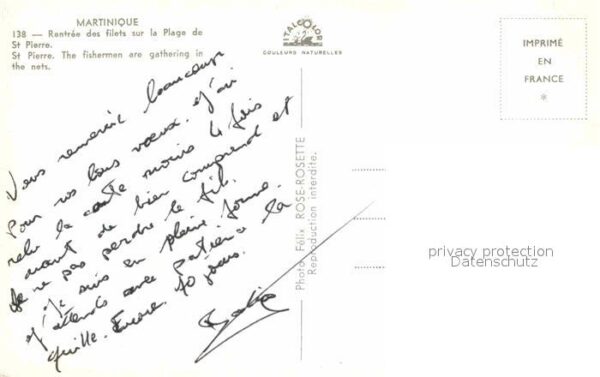 MARTINIQUE
138 — Rentrée des filets sur la Plage de
St Pierre.
St Pierre. The fishermen are gathering in
the nets.
ITALCOLOR
COULEURS NATURELLES
IMPRIMÉ
EN
FRANCE
*
Vous remercie beaucoup
Pour vos bons vœux. J'ai
relu la carte moins 4 fois
avant de bien comprendre et
de ne pas perdre le fil.
Je suis en pleine forme
attends avec patience la
quille. Encore 40 jours.
Photo Félix ROSE-ROSETTE
Reproduction interdite.
privacy protection
Datenschutz